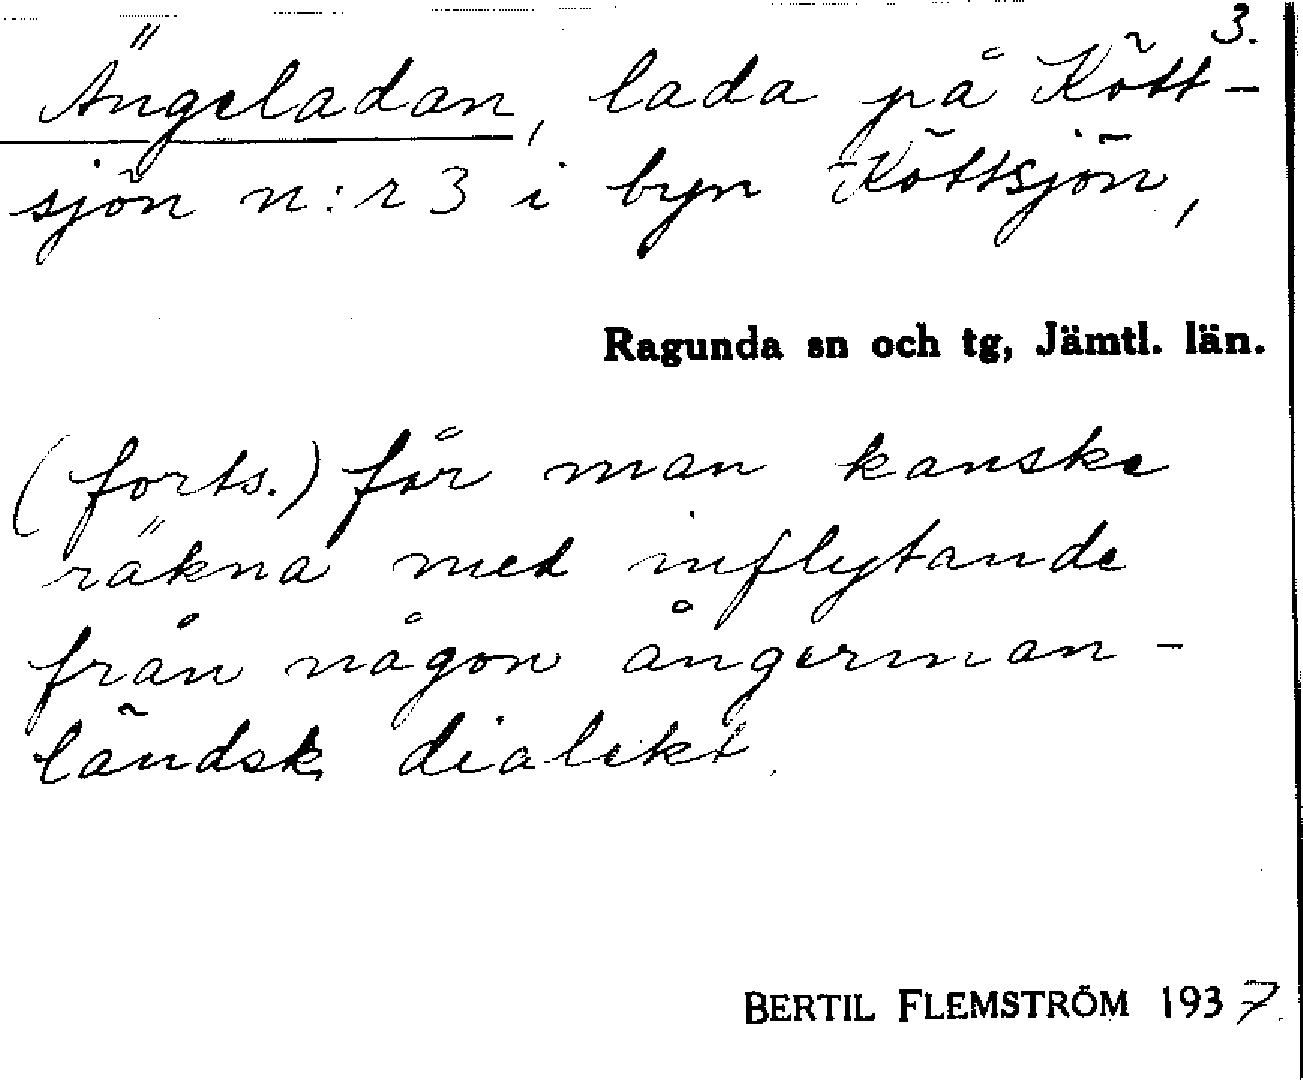 3.
Ängeladan, lada på Kött-
sjön n:r 3 i byn Köttsjön,
Ragunda sn och tg, Jämtl. län.
(forts.) får man kanske
räkna med inflytande
från någon ångerman-
ländsk dialekt.
BERTIL FLEMSTRÖM 1937